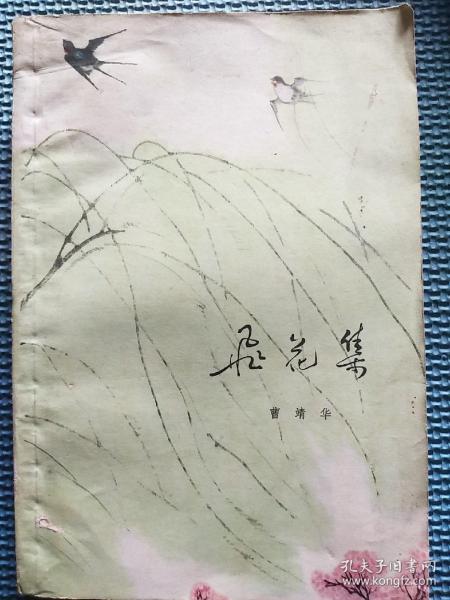 飞花集
曹靖华
孔夫子旧书网
www.kongfz.com